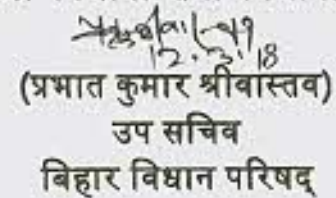 12.3.18
(प्रभात कुमार श्रीवास्तव)
उप सचिव
बिहार विधान परिषद्